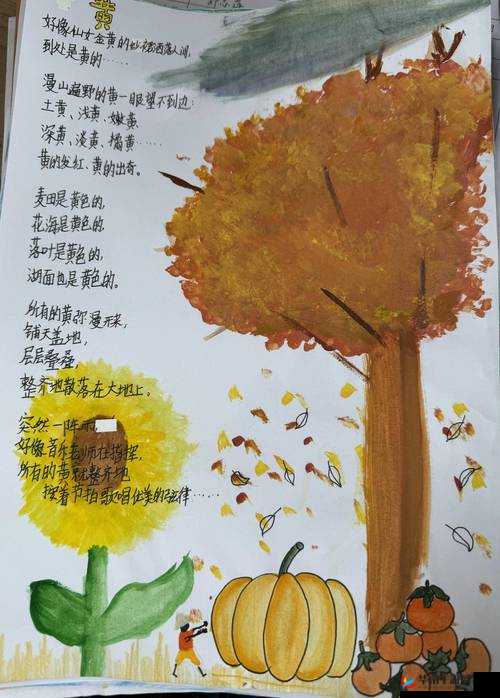 黄
好像仙女金黄的纱裙洒落人间,
到处是黄的……
漫山遍野的黄一眼望不到边:
土黄、浅黄、嫩黄、
深黄、淡黄、橘黄……
黄的发红、黄的出奇。
麦田是黄色的,
花海是黄色的,
落叶是黄色的,
湖面也是黄色的。
所有的黄弥漫开来,
铺天盖地,
层层叠叠,
整齐地散落在大地上。
突然一阵雨
好像音乐老师在指挥,
所有的黄就整齐地
按着节拍歌唱优美的旋律……